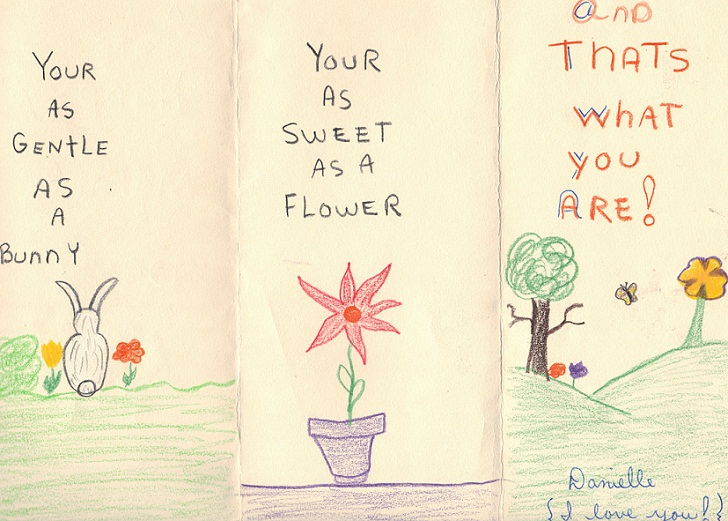 YOUR
AS
GENTLE
AS
A
BUNNY
YOUR
AS
SWEET
AS A
FLOWER
AND
THATS
WHAT
YOU
ARE!
Danielle
{I love you!}